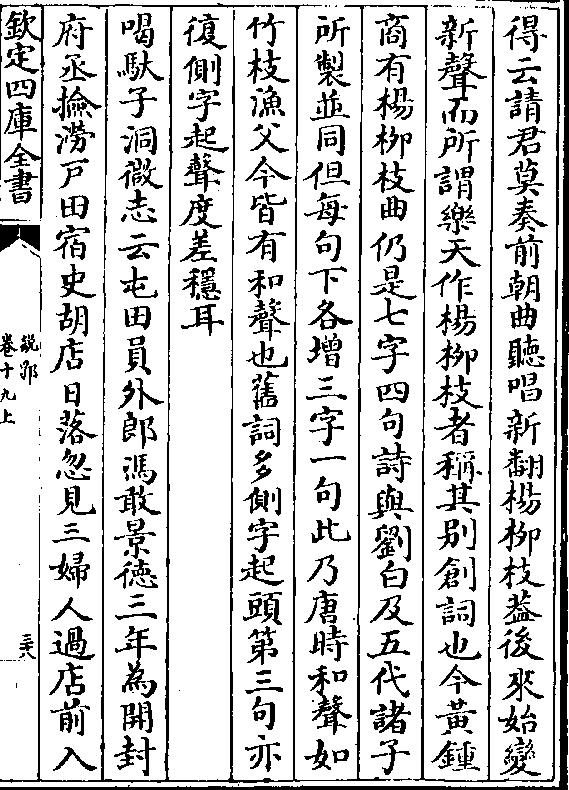 得云請君莫奏前朝曲聽唱新翻楊柳枝葢後來始變
新聲而所謂樂天作楊柳枝者稱其别創詞也今黃鍾
商有楊柳枝曲仍是七字四句詩與劉白及五代諸子
所製並同但每句下各增三字一句此乃唐時和聲如
竹枝漁父今皆有和聲也舊詞多側字起頭第三句亦
復側字起聲度差穩耳
喝馱子洞微志云屯田員外郎馮敢景徳三年為開封
府丞撿澇戸田宿史胡店日落忽見三婦人過店前入
欽定四庫全書
說郛
卷十九上
三六